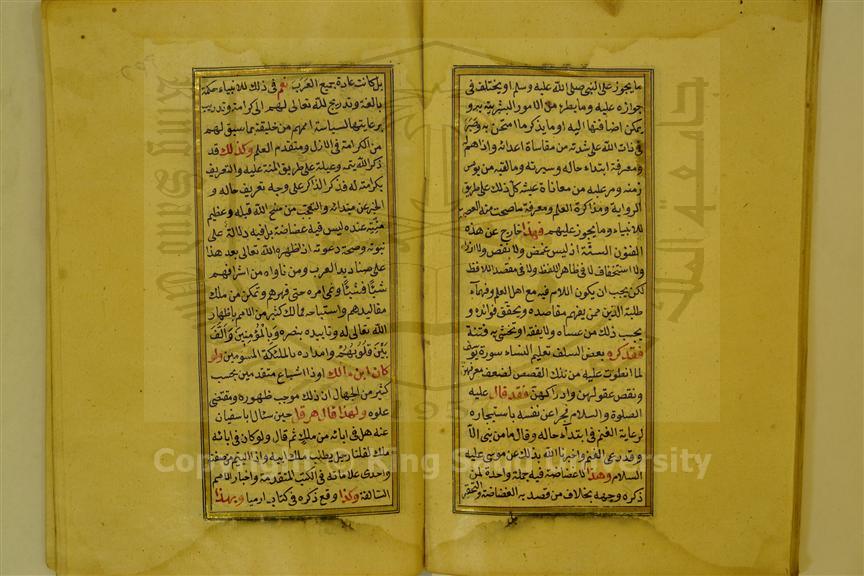 ما يجوز على النبى صلى الله عليه وسلم او يختلف فى
جوازه عليه وما يطرء من الامور البشرية به و
يمكن اضافتها اليه او يذكر ما امتحن به وصبر
فى ذات الله على شدته من مقاساة اعدائه واذاهم له
ومعرفة ابتداء حاله وسيرته وما لقيه من بوس
زمنه ومر عليه من معاناة عيشه كل ذلك على طريق
الرواية ومذاكرة العلم ومعرفة ما صحت منه العصمة
للانبياء وما يجوز عليهم فهذا خارج عن هذه
الفنون الستة اذ ليس غمض ولا نقص ولا ازراء
ولا استخفاف لا فى ظاهر اللفظ ولا فى مقصد اللافظ
لكن يجب ان يكون الكلام فيه مع اهل العلم وفهماء
طلبة الدين ممن يفهم مقاصده ويحقق فوائده و
يجنب ذلك من عساه لا يفقه او يخشى به فتنة
فقد كره بعض السلف تعليم النساء سورة يوسف
لما انطوت عليه من تلك القصص لضعف معرفتهن
ونقص عقولهن وادراكهن فقد قال عليه
الصلوة والسلام مخبرا عن نفسه باستيجاره
لرعاية الغنم فى ابتداء حاله وقال ما من نبى الا
وقد رعى الغنم واخبرنا الله بذلك عن موسى عليه
السلام وهذا لا غضاضة فيه جملة واحدة لمن
ذكره وجهه بخلاف من قصد به الغضاضة والتحقير
بل كانت عادة جميع العرب نعم فى ذلك للانبياء حكمة
بالغة وتدريج لله تعالى لهم الى كرامة وتدريب
برعايتها لسياسة اممهم من خليقته بما سبق لهم
من الكرامة فى الازل ومتقدم العلم وكذلك قد
ذكر الله يتمه وعيلة على طريق المنة عليه والتعريف
بكرامته له فذكر الذاكر على وجه تعريف حاله و
الخبر عن مبتدائه والتعجب من منح الله قبله وعظيم
منته عنده ليس فيه غضاضة بل فيه دلالة على
نبوته وصحة دعوته اذ اظهره الله تعالى بعد هذا
على صناديد العرب ومن ناواه من اشرافهم
شيئا فشيئا ونمى امره حتى قهرهم وتمكن من ملك
مقاليدهم واستباحة ممالك كثير من الامم باظهار
الله تعالى له وتاييده بنصره وبالمؤمنين والف
بين قلوبهم وامداده بالملئكة المسومين ولو
كان ابن ملك او ذا اشياع متقدمين بحسب
كثير من الجهال ان ذلك موجب ظهوره ومقتضى
علوه ولهذا قال هرقل حين سئال ابا سفيان
عنه هل فى ابائه من ملك ثم قال ولو كان فى ابائه
ملك لقلنا رجل يطلب ملك ابيه واذ اليتم من صفته
واحدى علاماته فى الكتب المتقدمة واخبار الامم
السالفة وكذا وقع ذكره فى كتاب ارميا وبهذا
Copyright © King Saud University